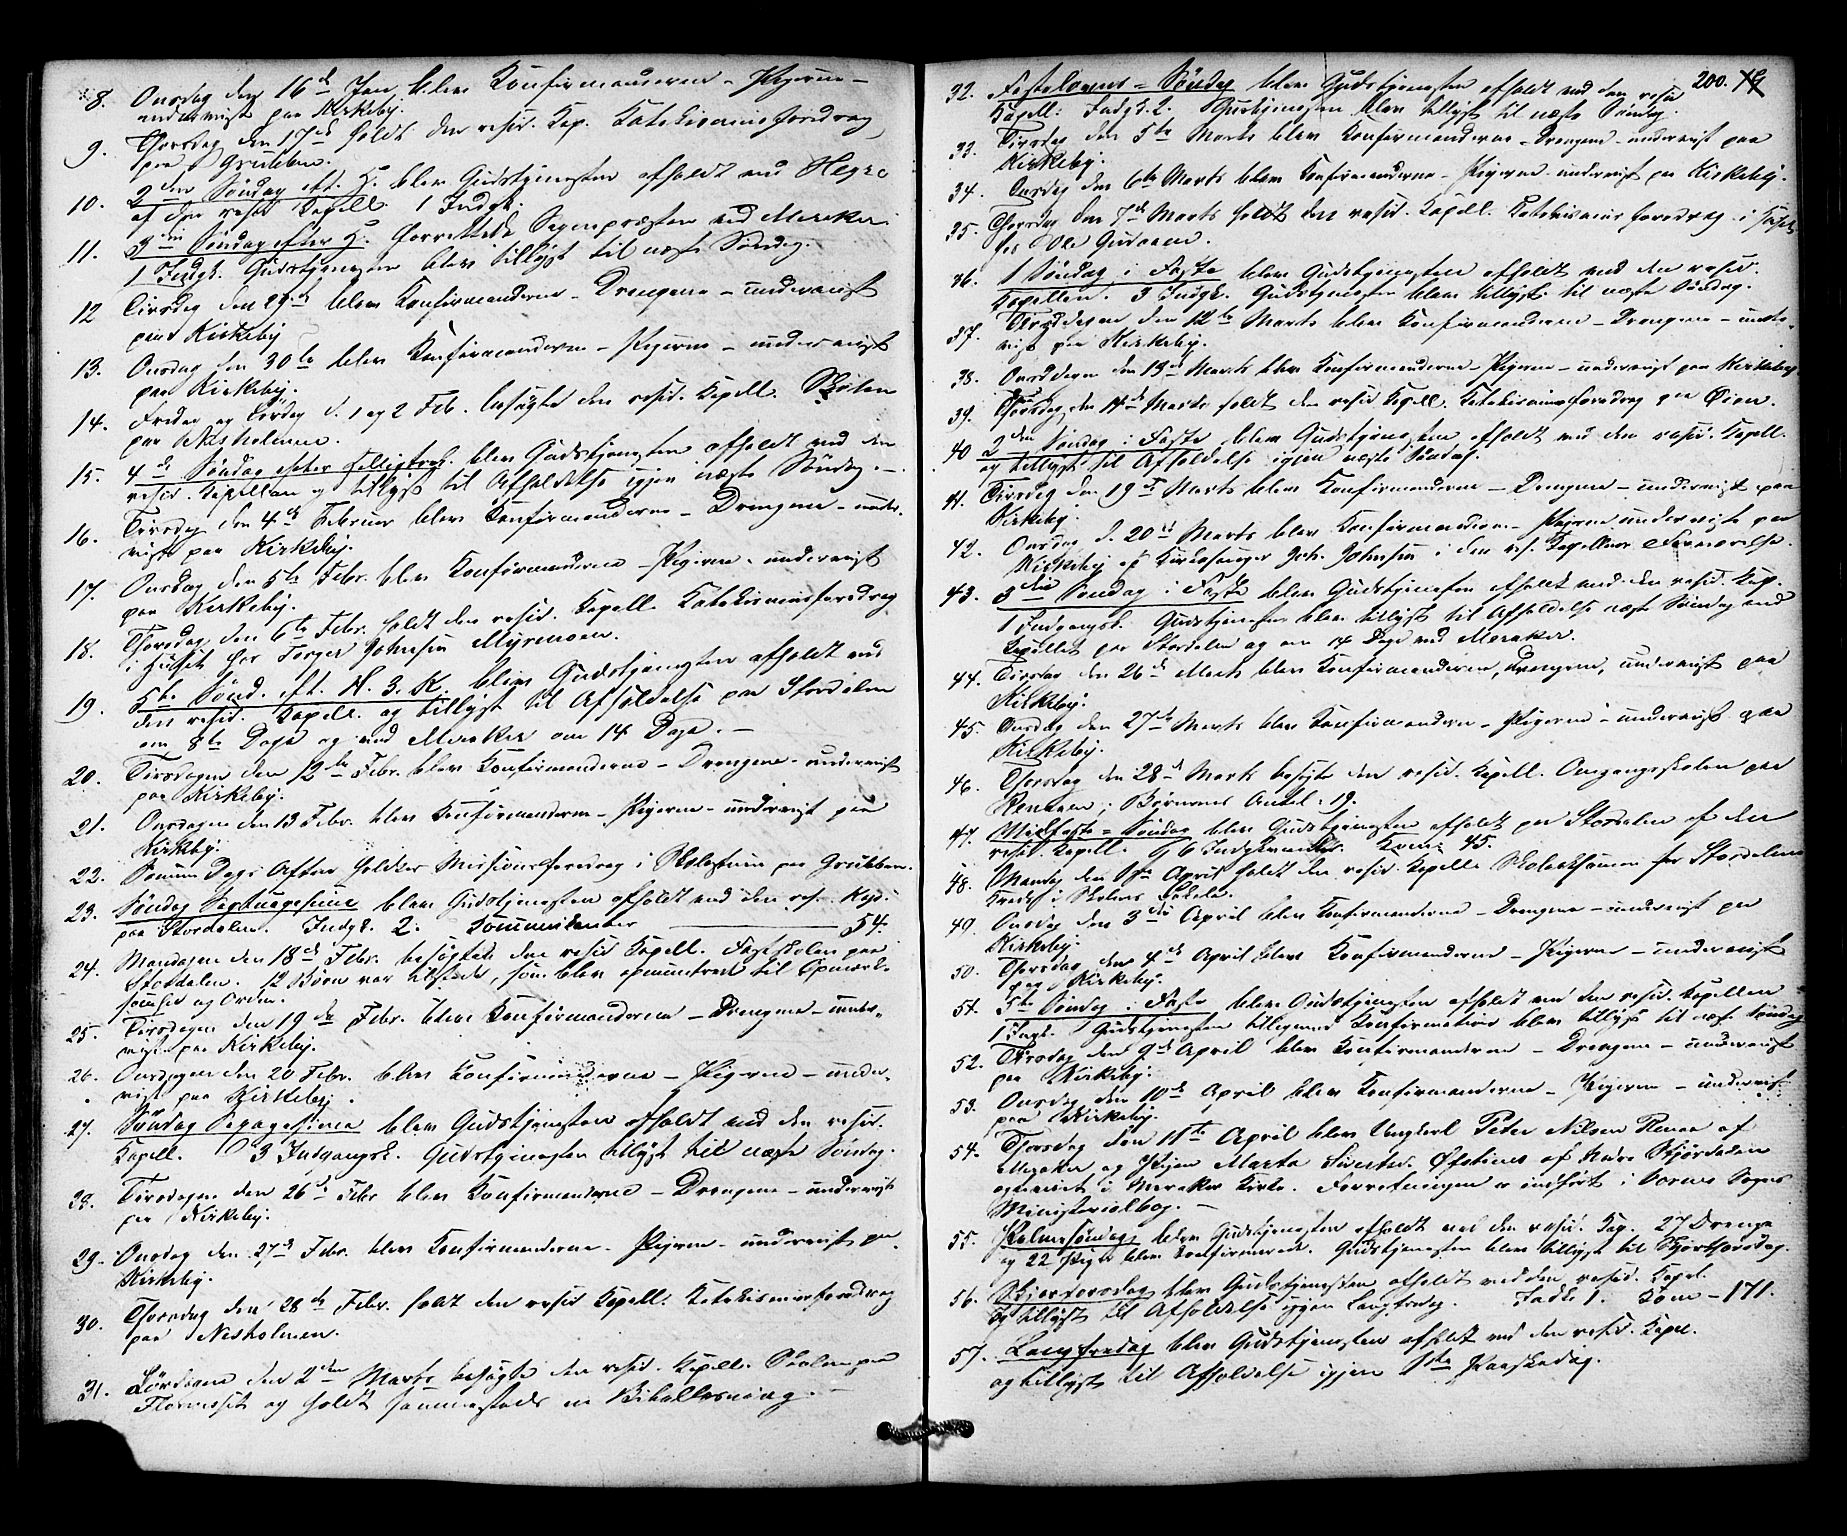 8. Onsdag den 16de Jan. blev Konfirmanderne - Pigerne -
undervist paa Kirkeby.
9. Thorsdag den 17de holdt den resid. Kap. Katekismusforedrag
paa Grubben.
10. 2den Søndag eft. H. blev Gudstjenesten afholdt ved Hegre
af den resid. Kapell. 1 Indgk.
11. 3die Søndag efter H. forrettede Sognepræsten ved Meraker.
1 Indgk. Gudstjenesten blev tillyst til næste Søndag.
12 Tirsdag den 29de blev Konfirmanderne - Drengene - undervist
paa Kirkeby
13. Onsdag den 30te blev Konfirmanderne - Pigerne - undervist
paa Kirkeby.
14. Fredag og Lørdag d. 1 og 2 Feb. besøgte den resid. Kapell. Skolen
paa Nesholmen.
15. 4de Søndag efter Helligtrek. blev Gudstjenesten afholdt ved den
resid. Kapellan og tillyst til Afholdelse igjen næste Søndag. -
16. Tirsdag den 4de Februar blev Konfirmanderne - Drengene - under-
vist paa Kirkeby.
17. Onsdag den 5te Febr. blev Konfirmanderne - Pigerne - undervist
paa Kirkeby.
18. Thorsdag den 6te Febr. holdt den resid. Kapell. Katekismusforedrag
i Huset hos Torger Johnsen Myrmoen.
19. 5te Sønd. eft. H. 3. K. blev Gudstjenesten afholdt ved
den resid. Kapell. og tillyst til Afholdelse paa Stordalen
om 8te Dage og ved Meraker om 14 Dage. -
20. Tirsdagen den 12te Febr. blev Konfirmanderne - Drengene - undervist
paa Kirkeby.
21. Onsdagen den 13 Febr. blev Konfirmanderne - Pigerne - undervist paa
Kirkeby.
22. Samme Dags Aften holdtes Missionsforedrag i Skolestuen paa Grubben.
23. Søndag Septuagesima blev Gudstjenesten afholdt ved den res. Kap.
paa Stordalen. Indgk. 2. Kommunikanter 54.
24. Mandagen den 18de Febr. besøgtes den resid. Kapell. Fastskolen paa
Stordalen. 12 Børn var tilstede, som blev opmuntret til Opmærk-
somhed og Orden.
25. Tirsdagen den 19de Febr. blev Konfirmanderne - Drengene - under-
vist paa Kirkeby.
26. Onsdagen den 20 Febr. blev Konfirmanderne - Pigerne - under-
vist paa Kirkeby.
27. Søndag Sexagesima blev Gudstjenesten afholdt ved den resid.
Kapell. 3 Indgangsk. Gudstjenesten tillyst til næste Søndag.
28. Tirsdagen den 26de Febr. blev Konfirmanderne - Drengene - undervist
paa Kirkeby.
29. Onsdag den 27de Febr. blev Konfirmanderne - Pigerne - undervist paa
Kirkeby.
30. Thorsdag den 28de Febr. holdt den resid Kapell. Katekismusforedrag
paa Nesholmen.
31. Lørdagen den 2den Marts besøgte den resid. Kapell. Skolen paa
Flornesset og holdt sammesteds en Bibellæsning. -
200.
32. Fastelavns-Søndag blev Gudstjenesten afholdt ved den resid
Kapell. Indgk. 2. Gudstjenesten blev tillyst til næste Søndag.
33. Tirsdag den 5te Marts blev Konfirmanderne - Drengene - undervist paa
Kirkeby.
34. Onsdag den 6te Marts blev Konfirmanderne - Pigerne - undervist paa Kirkeby.
35. Thorsdag den 7de Marts holdt den resid. Kapell. Katekismusforedrag i Huset
hos Ole Gudaaen.
36. 1 Søndag i Faste blev Gudstjenesten afholdt ved den resid.
Kapellan. 3 Indgk. Gudstjenesten blev tillyst til næste Søndag.
37. Tirsdagen den 12te Marts blev Konfirmanderne - Drengene - under-
vist paa Kirkeby.
38. Onsdagen den 13de Marts blev Konfirmanderne - Pigerne - undervist paa Kirkeby.
39. Thorsdag den 14de Marts holdt den resid Kapell. Katekismusforedrag paa Øien.
40 2den Søndag i Faste blev Gudstjenesten afholdt ved den resid. Kapell.
og tillyst til Afholdelse igjen næste Søndag.
41. Tirsdag den 19de Marts blev Konfirmanderne - Drengene - undervist paa
Kirkeby.
42. Onsdag d. 20de Marts blev Konfirmanderne - Pigerne underviste paa
Kirkeby af Kirkesanger Joh. Johnsen i den res. Kapellans Fraværelse.
43. 3die Søndag i Faste blev Gudstjenesten afholdt ved den resid. Kap.
1 Indgangsk. Gudstjenesten blev tillyst til Afholdelse næste Søndag ved
Kapellet paa Stordalen og om 14 Dage ved Meraker.
44. Tirsdag den 26de Marts blev Konfirmanderne, Drengene, undervist paa
Kirkeby.
45. Onsdag den 27de Marts blev Konfirmanderne - Pigerne - undervist paa
Kirkeby.
46. Thorsdag den 28de Marts besøgte den resid. Kapell. Omgangsskolen paa
Renaaen; Børnenes Antal: 19.
47. Midfaste-Søndag blev Gudstjenesten afholdt paa Stordalen af den
resid. Kapell. 6 Indgk. Kom. 45.
48. Mandag den 1ste April holdt den resid. Kapell. Skoleeksamen for Stordalens
Kreds i Skolens Lokale.
49. Onsdag den 3die April blev Konfirmanderne - Drengene - undervist paa
Kirkeby.
50. Thorsdag den 4de April blev Konfirmanderne - Pigerne - undervist
paa Kirkeby.
51. 5te Søndag i Faste blev Gudstjenesten afholdt ved den resid. Kapellan
1 Indgk. Gudstjenesten tilligemed Konfirmation blev tillyst til næste Søndag
52. Tirsdag den 9de April blev Konfirmanderne - Drengene - undervist
paa Kirkeby.
53. Onsdag den 10de April blev Konfirmanderne - Pigerne - undervist
paa Kirkeby.
54. Thorsdag den 11te April blev Ungkarl Peder Nilsen Renaa af
Meraker og Pigen Marta Sivertsd. Øfstines af Nedre Stjørdalen
ægteviet i Meraker Kirke. Forretningen er indført i Værnes Sogns
Ministerialbog. -
55. Palmesøndag blev Gudstjenesten afholdt ved den resid. Kap. 27 Drenge
og 22 Piger blev konfirmerede. Gudstjenesten blev tillyst til Skjærthorsdag.
56. Skjærthorsdag blev Gudstjenesten afholdt ved den resid. Kapel.
og tillyst til Afholdelse igjen Langfredag. Indk. 1. Kom - 171.
57. Langfredag blev Gudstjenesten afholdt ved den resid. Kapel.
og tillyst til Afholdelse igjen 1ste Paaskedag.